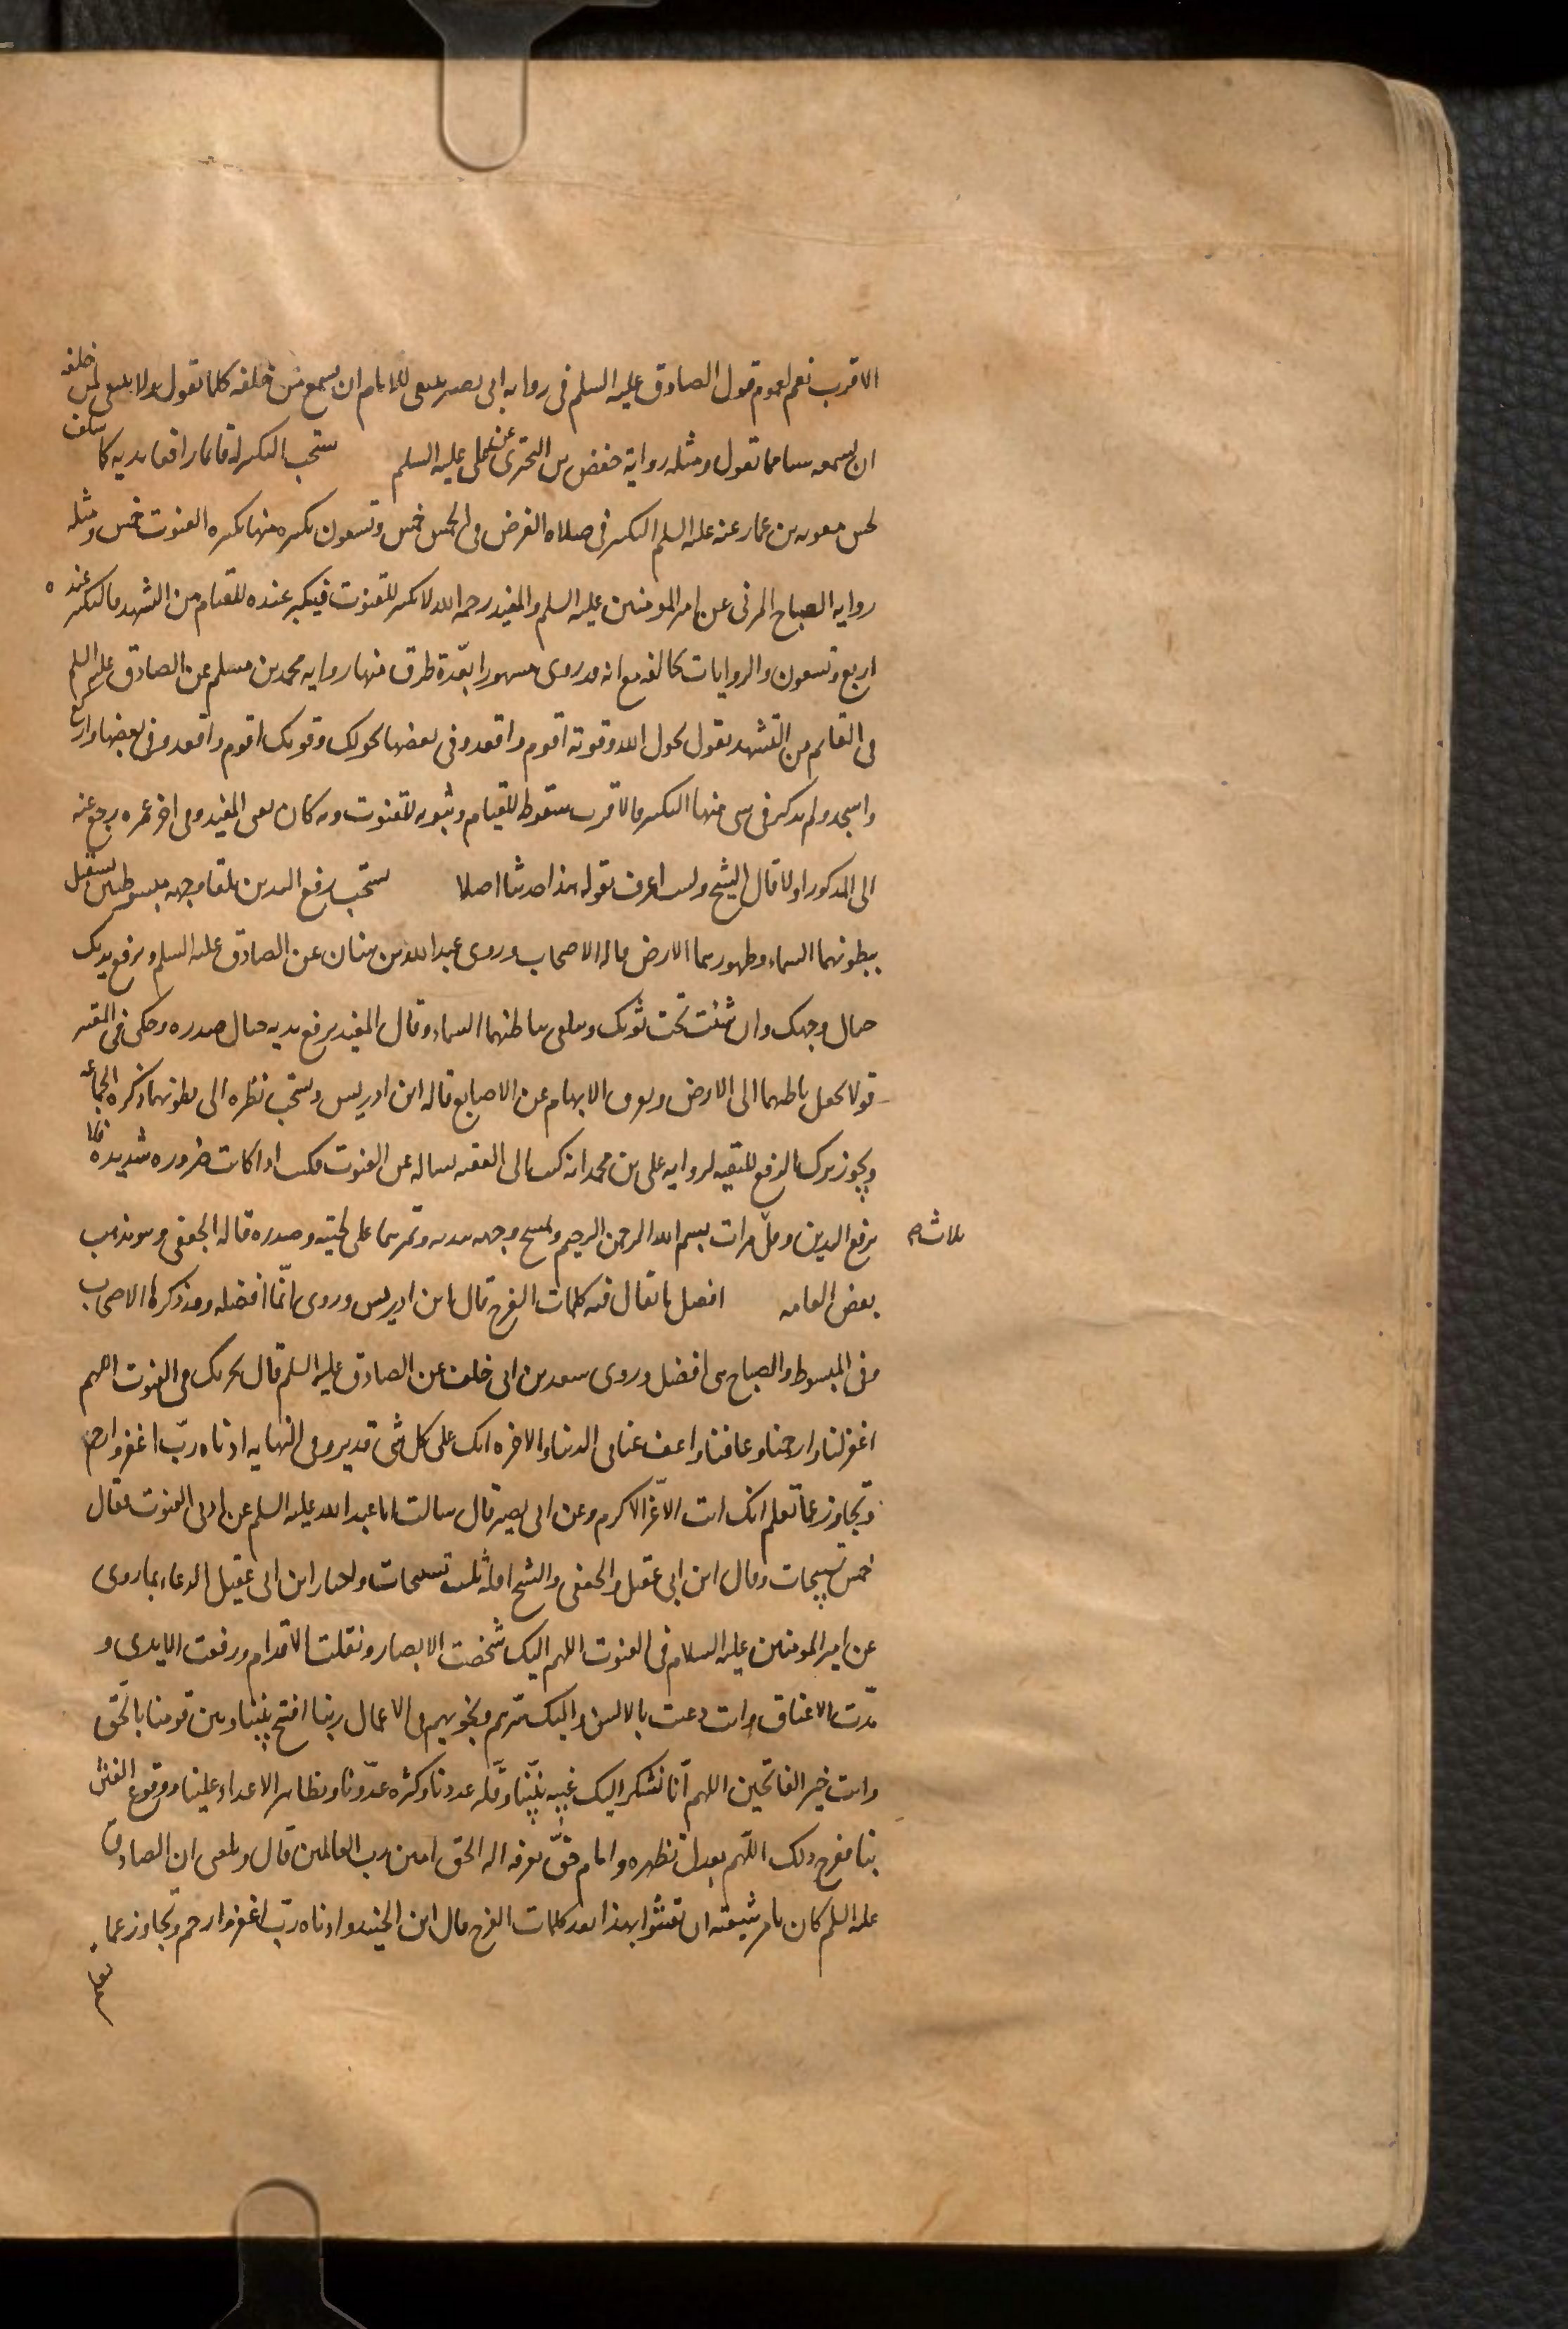 الاقرب نعم لعموم قول الصادق عليه السلم فى روايه ابى بصير ينبغى للامام ان يسمع من خلفه كلما يقول ولا ينبغى لمن خلفه
ان يسمعه شيئا مما يقول ومثله رواية حفص بن البخترى عنه عليه السلم يستحب التكبير له قائما رافعا يديه كما سلف
لحسن معويه بن عمار عنه عليه السلم التكبير فى صلاه الفرض فى الخمس خمس وتسعون تكبيره منها تكبيره القنوت خمس ومثله
روايه الصباح المزنى عن امير المومنين عليه السلم والمفيد رحمه الله لا يكبر للقنوت فيكبر عنده للقيام من التشهد فالتكبير عنده
اربع وتسعون والروايات تخالفه مع انه قد روى مشهورا بعدة طرق منها روايه محمد بن مسلم عن الصادق عليه السلم
فى القائم من التشهد يقول بحول الله وقوته اقوم واقعد وفى بعضها بحولك وقوتك اقوم واقعد وفى بعضها واركع
واسجد ولم يذكر فى شى منها التكبير فالاقرب سقوطه للقيام وثبوته للقنوت وبه كان يفتى المفيد وفى اخر عمره رجع عنه
الى المذكور اولا قال الشيخ ولست اعرف بقوله هذا حديثا اصلا يستحب رفع اليدين تلقاء وجهه مبسوطتين يستقبل
ببطونهما السماء وظهورهما الارض قاله الاصحاب وروى عبد الله بن سنان عن الصادق عليه السلم وترفع يديك
حيال وجهك وان شئت تحت ثوبك وتتلقى بباطنهما السماء وقال المفيد يرفع يديه حيال صدره وحكى فى المعتبر
قولا بجعل باطنهما الى الارض ويفرق الابهام عن الاصابع قاله ابن ادريس ويستحب نظره الى بطونهما ذكره الجماعه
ويجوز ترك الرفع للتقيه لروايه على بن محمد انه كتب الى الفقيه يساله عن القنوت فكتب اذا كانت ضروره شديده فلا
ترفع اليدين وقل ثلاث مرات بسم الله الرحمن الرحيم ويمسح وجهه بيديه ويمرهما على لحيته وصدره قاله الجعفى وهو مذهب
بعض العامه افضل ما يقال فيه كلمات الفرج قال ابن ادريس وروى انها افضله وقد ذكرها الاصحاب
وفى المبسوط والمصباح هى افضل وروى سعد بن ابى خلف عن الصادق عليه السلم قال يجزيك فى القنوت اللهم
اغفر لنا وارحمنا وعافنا واعف عنا فى الدنيا والاخره انك على كل شى قدير وفى النهايه ادناه رب اغفر وارحم
وتجاوز عما تعلم انك انت الاعز الاكرم وعن ابى بصير قال سالت ابا عبد الله عليه السلم عن ادنى القنوت فقال
خمس تسبيحات وقال ابن ابى عقيل والجعفى والشيخ اقله ثلث تسبيحات واختار ابن ابى عقيل الدعاء بما روى
عن امير المومنين عليه السلام فى القنوت اللهم اليك شخصت الابصار ونقلت الاقدام ورفعت الايدى و
مدت الاعناق وانت دعيت بالالسن واليك سرهم ونجويهم فى الاعمال ربنا افتح بيننا وبين قومنا بالحق
وانت خير الفاتحين اللهم انا نشكو اليك غيبه نبينا وقله عددنا وكثره عدونا وتظاهر الاعداء علينا ووقوع الفتن
بنا ففرج ذلك اللهم بعدل تظهره وامام حق نعرفه اله الحق امين رب العالمين قال وبلغنى ان الصادق
عليه السلم كان يامر شيعته ان يقنتوا بهذا بعد كلمات الفرج قال ابن الجنيد وادناه رب اغفر وارحم وتجاوز عما
تعلم